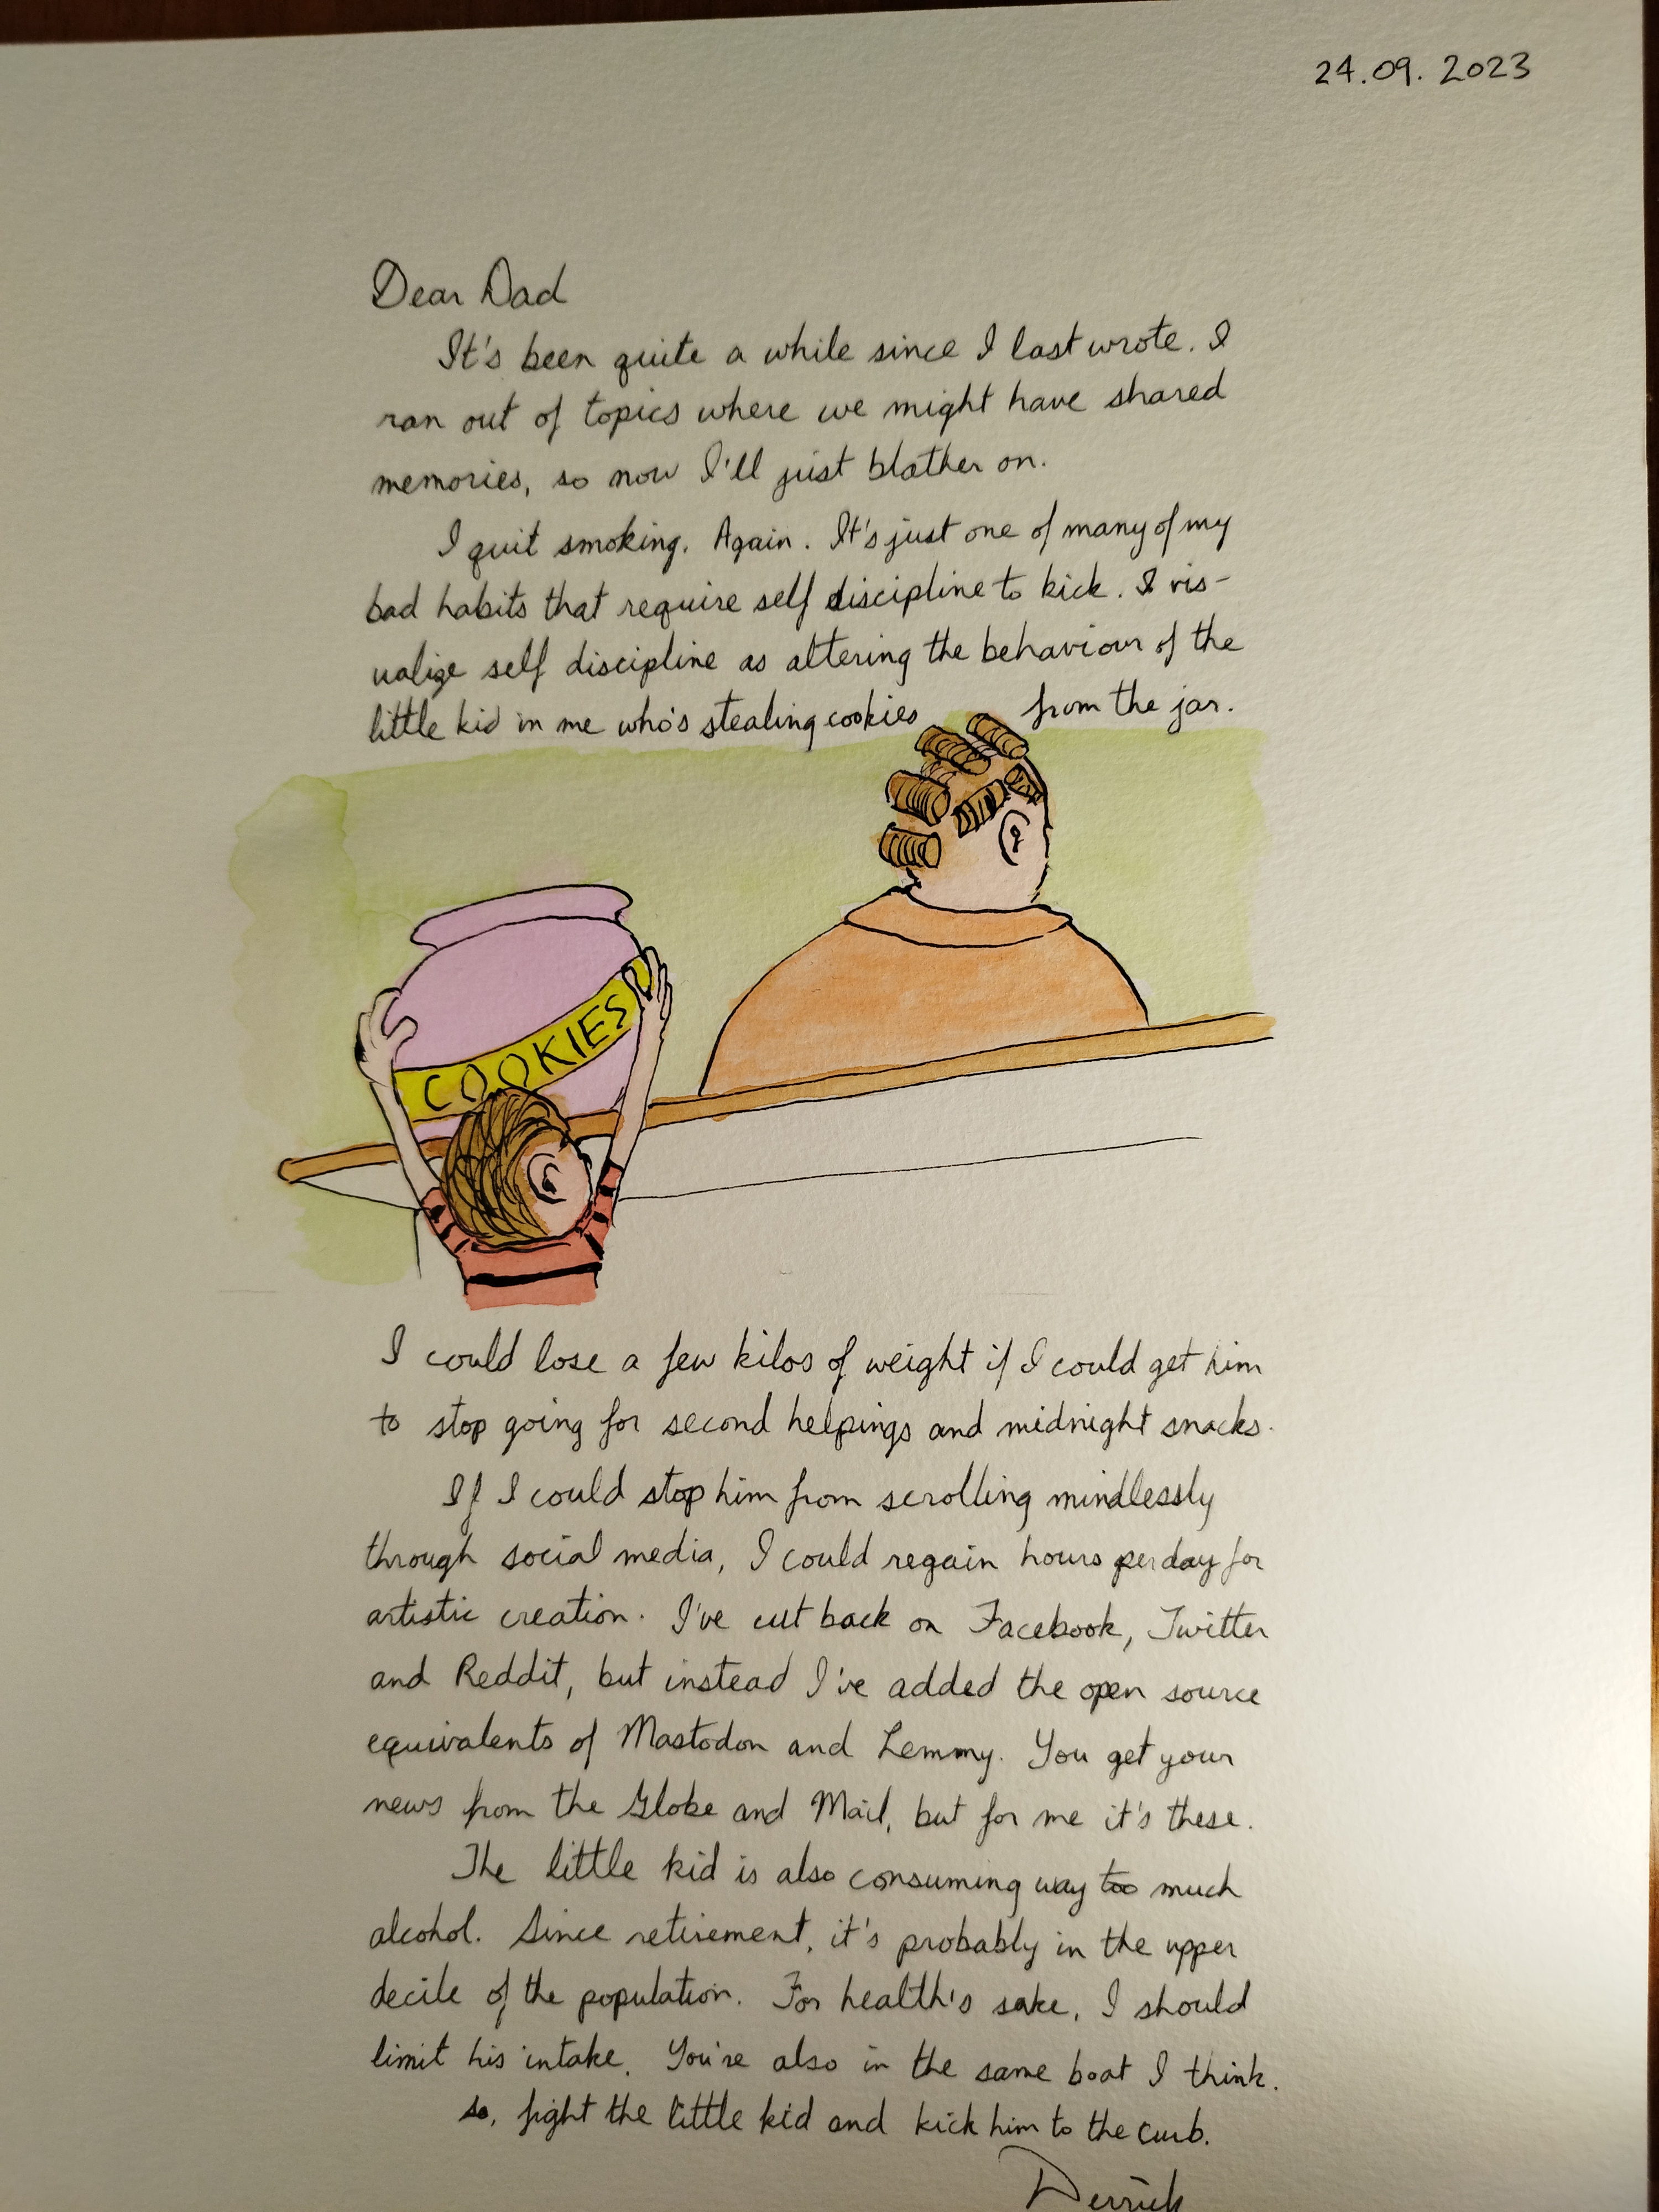 24.09.2023
Dear Dad
It's been quite a while since I last wrote. I
ran out of topics where we might have shared
memories, so now I'll just blather on.
I quit smoking. Again. It's just one of many of my
bad habits that require self discipline to kick. I vis-
ualize self discipline as altering the behaviour of the
little kid in me who's stealing cookies from the jar.
COOKIES
I could lose a few kilos of weight if I could get him
to stop going for second helpings and midnight snacks.
If I could stop him from scrolling mindlessly
through social media, I could regain hours per day for
artistic creation. I've cut back on Facebook, Twitter
and Reddit, but instead I've added the open source
equivalents of Mastodon and Lemmy. You get your
news from the Globe and Mail, but for me it's these.
The little kid is also consuming way too much
alcohol. Since retirement, it's probably in the upper
decile of the population. For health's sake, I should
limit his intake. You're also in the same boat I think.
So, fight the little kid and kick him to the curb.
Derrick